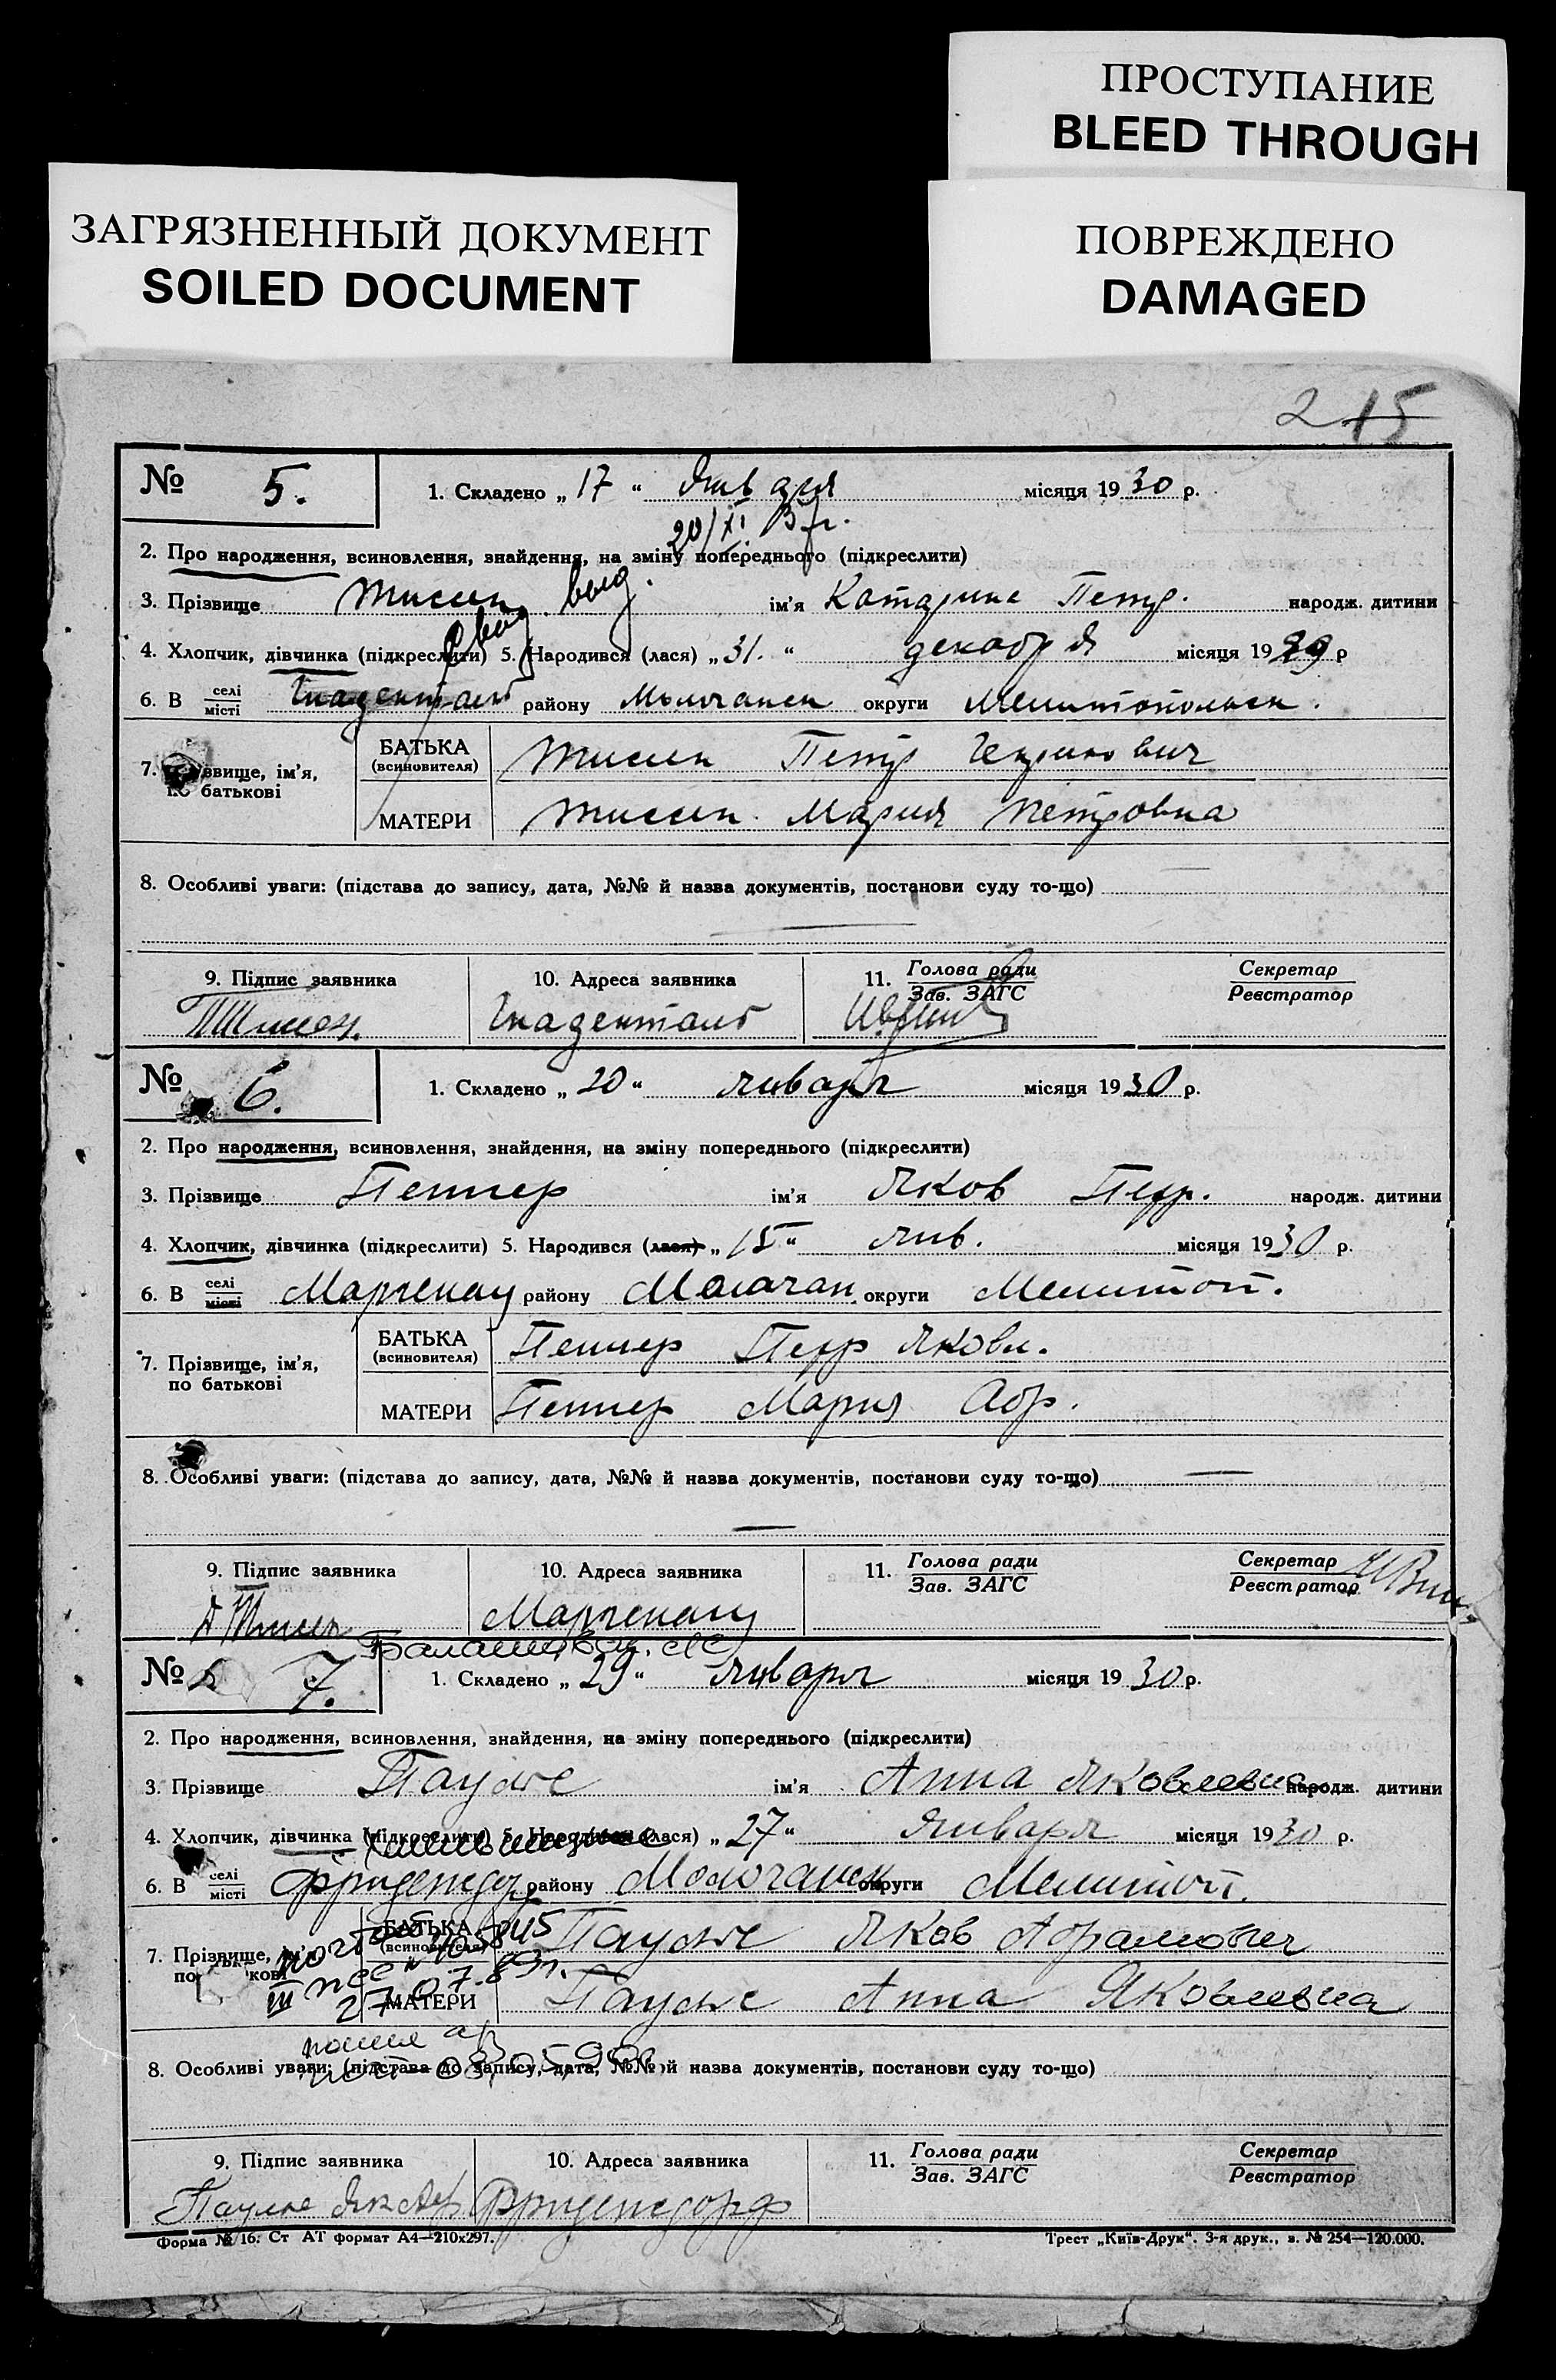 ПРОСТУПАНИЕ
BLEED THROUGH
ЗАГРЯЗНЕННЫЙ ДОКУМЕНТ
SOILED DOCUMENT
ПОВРЕЖДЕНО
DAMAGED
2 15
№ 5. 1. Складено „ 17 “ января місяця 19 30 р.
20/XI
2. Про народження, всиновлення, знайдення, на зміну попереднього (підкреслити)
3. Прізвище Тиссен ім'я Катарина Петр. народж. дитини
4. Хлопчик, дівчинка (підкреслити) 5. Народився (лася) „ 31. “ декабря місяця 19 29 р
6. В селі місті Гнадентал району Молочанск округи Мелитопольск.
7. Прізвище, ім'я, по батькові БАТЬКА (всиновителя) Тиссен Петр Генрихович
МАТЕРИ Тиссен Мария Петровна
8. Особливі уваги: (підстава до запису, дата, №№ й назва документів, постанови суду то-що)
9. Підпис заявника 10. Адреса заявника 11. Голова ради Зав. ЗАГС Секретар Реєстратор
ПТиссен.
№ 6. 1. Складено „ 20 “ января місяця 19 30 р.
2. Про народження, всиновлення, знайдення, на зміну попереднього (підкреслити)
3. Прізвище Пеннер ім'я Яков Петр. народж. дитини
4. Хлопчик, дівчинка (підкреслити) 5. Народився (лася) „ 15 “ янв. місяця 19 30 р.
6. В селі місті Маргенау району Молочан. округи Мелитоп.
7. Прізвище, ім'я, по батькові БАТЬКА (всиновителя) Пеннер Петр Яковл.
МАТЕРИ Пеннер Мария Абр.
8. Особливі уваги: (підстава до запису, дата, №№ й назва документів, постанови суду то-що)
9. Підпис заявника 10. Адреса заявника 11. Голова ради Зав. ЗАГС Секретар Реєстратор
Маргенау
№ 7. 1. Складено „ 29 “ января місяця 19 30 р.
2. Про народження, всиновлення, знайдення, на зміну попереднього (підкреслити)
3. Прізвище Паульс ім'я Анна Яковлевна народж. дитини
4. Хлопчик, дівчинка (підкреслити) 5. Народився (лася) „ 27 “ Января місяця 19 30 р.
6. В селі місті району Молочанск округи Мелитоп.
7. Прізвище, ім'я, по батькові БАТЬКА (всиновителя) Паульс Яков Абрамович
27.07.89г.
МАТЕРИ Паульс Анна Яковлевна
8. Особливі уваги: (підстава до запису, дата, №№ й назва документів, постанови суду то-що)
9. Підпис заявника 10. Адреса заявника 11. Голова ради Зав. ЗАГС Секретар Реєстратор
Фриденсдорф
Форма № 16. Ст АТ формат А4—210х297. Трест „Київ-Друк“. 3-я друк., з. № 254—120.000.